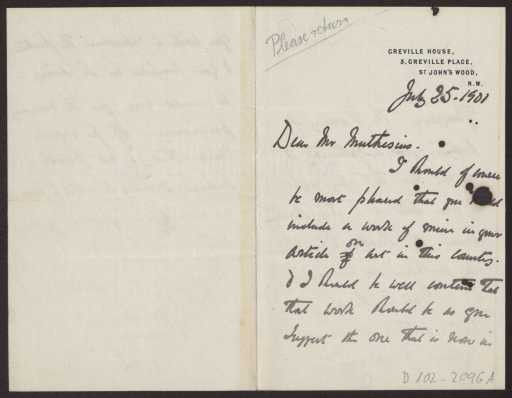 Please return
GREVILLE HOUSE,
3, GREVILLE PLACE,
ST JOHN'S WOOD,
N.W.
July 25 - 1901
Dear Mr Muthesius -
I should of course
be most pleased that you
include a work of mine in your
article on art in this country.
& I should be well content that
that work should be as you
suggest the one that is now in
D 102 - 2096 A